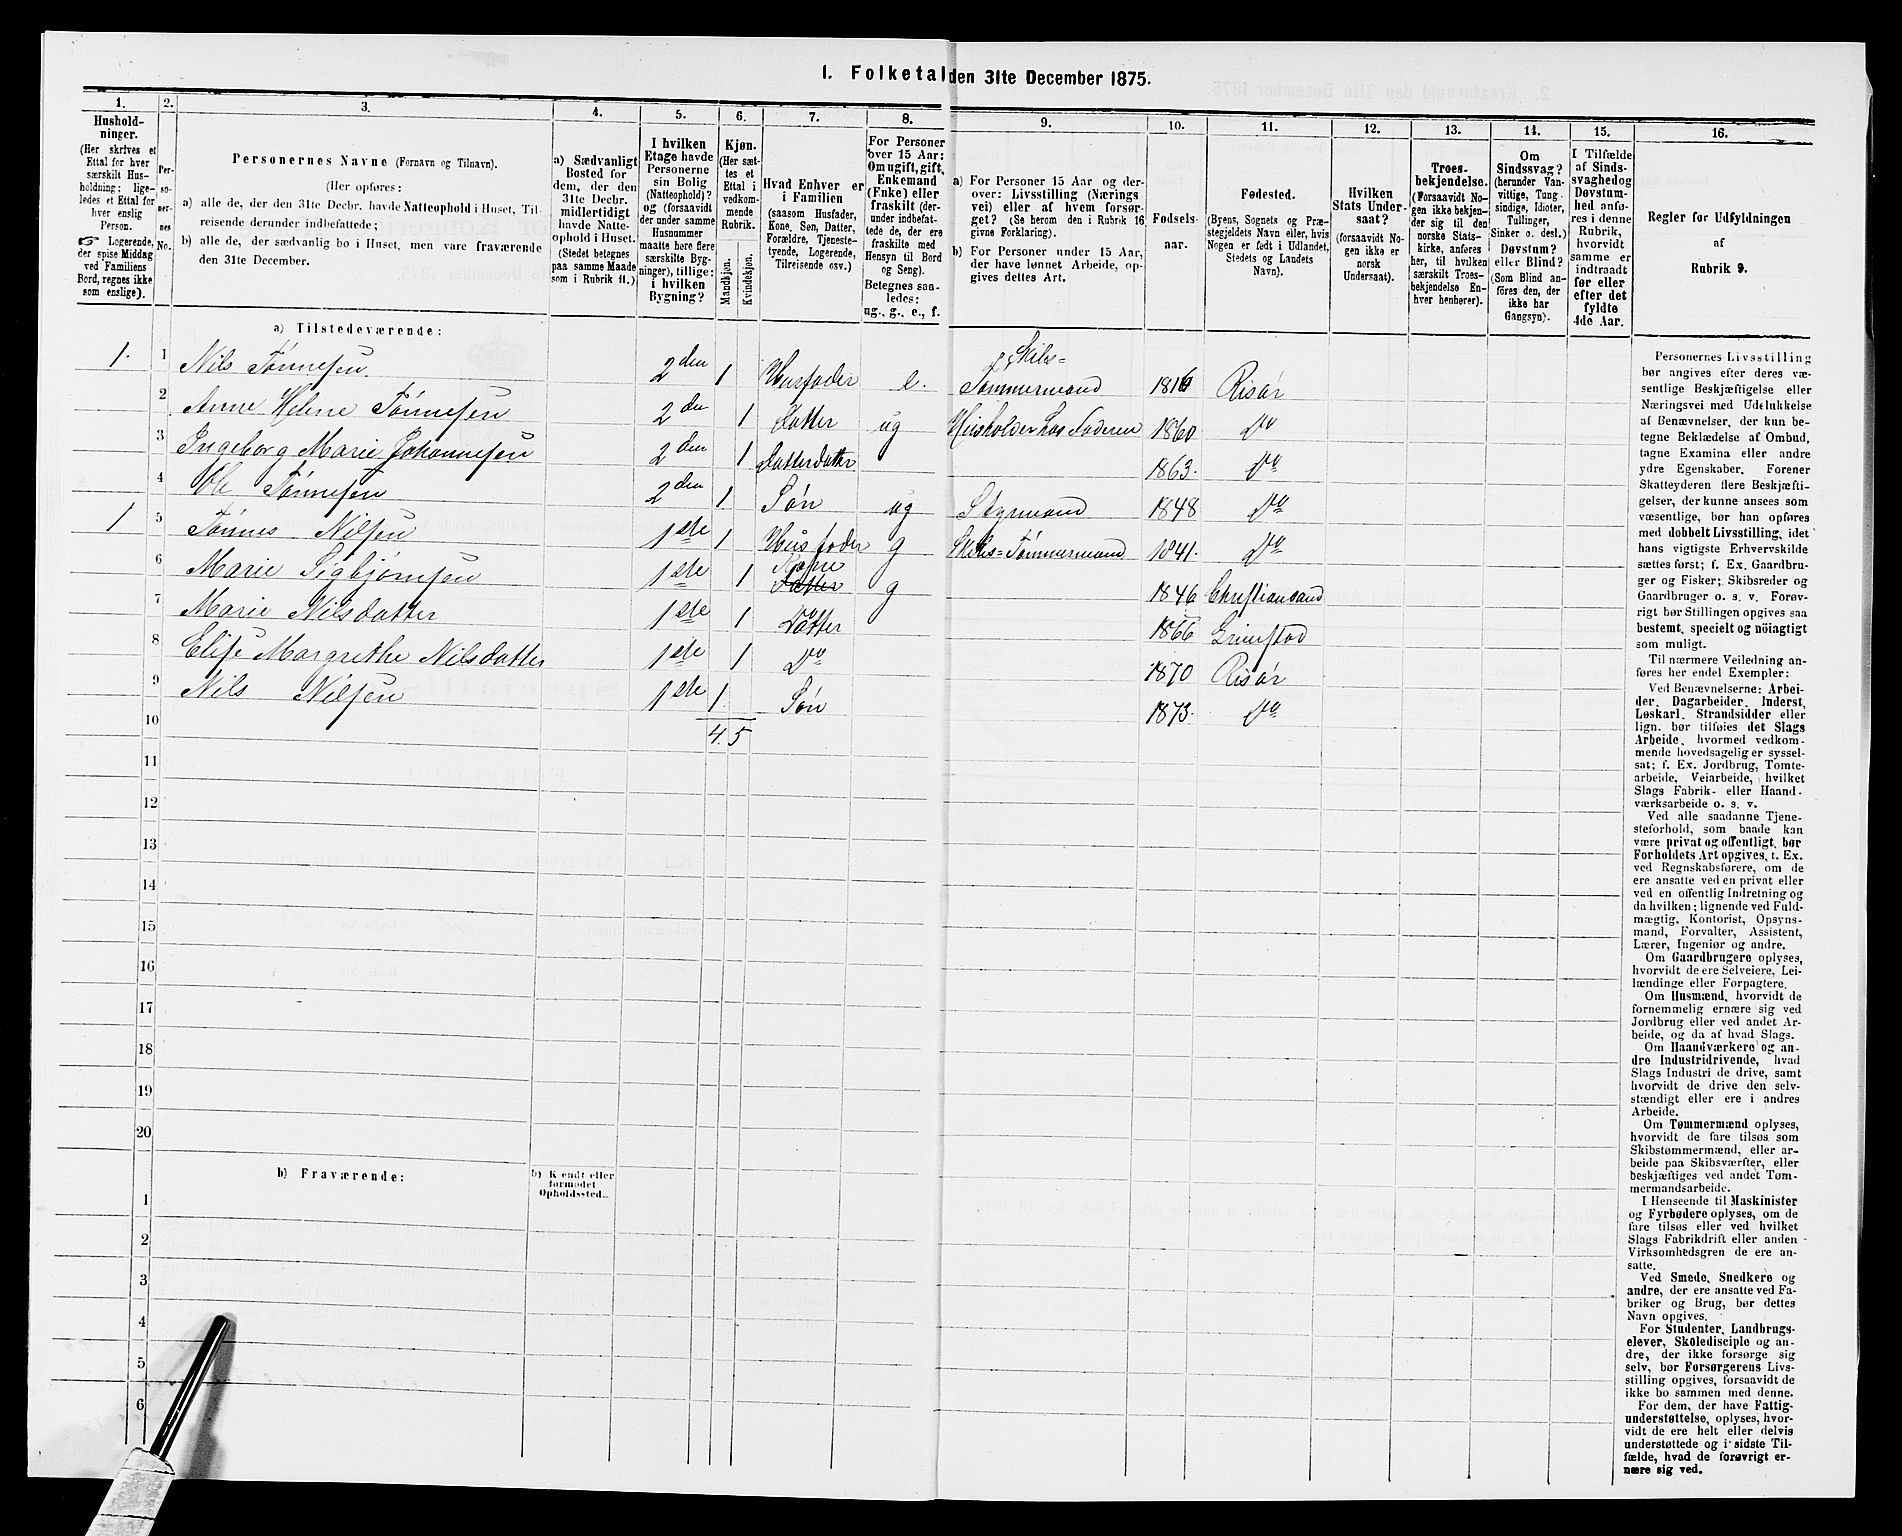 1. Folketal den 31te December 1875.
1.
Hushold-
ninger.
(Her skrives et
Ettal for hver
særskilt Hus-
holdning; lige-
ledes et Ettal for
hver enslig
Person.
☞ Logerende,
der spise Middag
ved Familiens
Bord, regnes ikke
som enslige).
2.
Per-
so-
ner-
nes
No.
3.
Personernes Navne (Fornavn og Tilnavn).
(Her opføres:
a) alle de, der den 31te Decbr. havde Natteophold i Huset, Til-
reisende derunder indbefattede;
b) alle de, der sædvanlig bo i Huset, men vare fraværende
den 31te December.
4.
a) Sædvanligt
Bosted for
dem, der den
31te Decbr.
midlertidigt
havde Natte-
ophold i Huset.
(Stedet betegnes
paa samme Maade
som i Rubrik 11.)
5.
I hvilken
Etage havde
Personerne
sin Bolig
(Natteophold)?
og (forsaavidt
der under samme
Husnummer
maatte høre flere
særskilte Byg-
ninger), tillige:
i hvilken
Bygning?
6.
Kjøn.
(Her sæt-
tes et
Ettal i
vedkom-
mende
Rubrik.
Mandkjøn.
Kvindekjøn.
7.
Hvad Enhver er
i Familien
(saasom Husfader,
Kone, Søn, Datter,
Forældre, Tjeneste-
tyende, Logerende,
Tilreisende osv.)
8.
For Personer
over 15 Aar:
Om ugift, gift,
Enkemand
(Enke) eller
fraskilt (der-
under indbefat-
tede de, der ere
fraskilte med
Hensyn til Bord
og Seng).
Betegnes saa-
ledes:
ug., g., e., f.
9.
a) For Personer 15 Aar og der-
over: Livsstilling (Nærings-
vei) eller af hvem forsør-
get? (Se herom den i Rubrik 16
givne Forklaring).
b) For Personer under 15 Aar,
der have lønnet Arbeide, op-
gives dettes Art.
10.
Fødsels-
aar.
11.
Fødested.
(Byens, Sognets og Præ-
stegjeldets Navn eller, hvis
Nogen er født i Udlandet,
Stedets og Landets
Navn).
12.
Hvilken
Stats Under-
saat?
(forsaavidt No-
gen ikke er
norsk
Undersaat).
13.
Troes-
bekjendelse.
(Forsaavidt No-
gen ikke bekjen-
der sig til den
norske Stats-
kirke, anføres
her, til hvilken
særskilt Troes-
bekjendelse En-
hver henhører).
14.
Om
Sindssvag?
(herunder Van-
vittige, Tung-
sindige, Idioter,
Tullinger,
Sinker o. desl.)
Døvstum?
eller Blind?
(Som Blind an-
føres den, der
ikke har
Gangsyn).
15.
I Tilfælde
af Sinds-
svaghed og
Døvstum-
hed anfø-
res i denne
Rubrik,
hvorvidt
samme er
indtraadt
før eller
efter det
fyldte
4de Aar.
16.
Regler for Udfyldningen
af
Rubrik 9.
a) Tilstedeværende:
1. 1 Nils Tønnesen 2den 1 Husfader e. Skibs=
Tømmermand 1816 Risør
2 Anne Helene Tønnesen 2den 1 Datter ug Husholder hos Faderen 1860 Do
3 Ingeborg Marie Johannesen 2den 1 Datterdatter 1863. Do
4 Ole Tønnesen 2den 1. Søn ug Styrmand 1848 Do
1 5 Tønnes Nilsen 1ste 1 Husfader g Skibs=Tømmermand 1841. Do
6 Marie Sigbjørnsen 1ste 1 Kone
Datter g 1846 Christiansand
7 Marie Nilsdatter 1ste 1 Datter 1866 Grimstad
8 Elise Margrethe Nilsdatter 1ste 1 Do 1870 Risør
9 Nils Nilsen 1ste 1. Søn 1873. Do
10 4. 5
11
12
13
14
15
16
17
18
19
20
b) Fraværende: b) Kjendt eller
formodet
Opholdssted.
1
2
3
4
5
6
Personernes Livsstilling
bør angives efter deres væ-
sentlige Beskjæftigelse eller
Næringsvei med Udelukkelse
af Benævnelser, der kun be-
tegne Beklædelse af Ombud,
tagne Examina eller andre
ydre Egenskaber. Forener
Skatteyderen flere Beskjæfti-
gelser, der kunne ansees som
væsentlige, bør han opføres
med dobbelt Livsstilling, idet
hans vigtigste Erhvervskilde
sættes først; f. Ex. Gaardbru-
ger og Fisker; Skibsreder og
Gaardbruger o. s. v. Forøv-
rigt bør Stillingen opgives saa
bestemt, specielt og nøiagtigt
som muligt.
Til nærmere Veiledning an-
føres her endel Exempler:
Ved Benævnelserne: Arbei-
der, Dagarbeider, Inderst,
Løskarl, Strandsidder eller
lign. bør tilføies det Slags
Arbeide, hvormed vedkom-
mende hovedsagelig er syssel-
sat; f. Ex. Jordbrug, Tomte-
arbeide, Veiarbeide, hvilket
Slags Fabrik- eller Haand-
værksarbeide o. s. v.
Ved alle saadanne Tjene-
steforhold, som baade kan
være privat og offentligt, bør
Forholdets Art opgives, t. Ex.
ved Regnskabsførere, om de
ere ansatte ved en privat eller
ved en offentlig Indretning og
da hvilken; lignende ved Fuld-
mægtig, Kontorist, Opsyns-
mand, Forvalter, Assistent,
Lærer, Ingeniør og andre.
Om Gaardbrugere oplyses,
hvorvidt de ere Selveiere, Lei-
lændinge eller Forpagtere.
Om Husmænd, hvorvidt de
fornemmelig ernære sig ved
Jordbrug eller ved andet Ar-
beide, og da af hvad Slags.
Om Haandværkere og an-
dre Industridrivende, hvad
Slags Industri de drive, samt
hvorvidt de drive den selv-
stændigt eller ere i andres
Arbeide.
Om Tømmermænd oplyses,
hvorvidt de fare tilsøs som
Skibstømmermænd, eller ar-
beide paa Skibsværfter, eller
beskjæftiges ved andet Tøm-
mermandsarbeide.
I Henseende til Maskinister
og Fyrbødere oplyses, om de
fare tilsøs eller ved hvilket
Slags Fabrikdrift eller anden
Virksomhedsgren de ere an-
satte.
Ved Smede, Snedkere og
andre, der ere ansatte ved Fa-
briker og Brug, bør dettes
Navn opgives.
For Studenter, Landbrugs-
elever, Skoledisciple og an-
dre, der ikke forsørge sig
selv, bør Forsørgerens Livs-
stilling opgives, forsaavidt de
ikke bo sammen med denne.
For dem, der have Fattig-
understøttelse, oplyses, hvor-
vidt de ere helt eller delvis
understøttede og i sidste Til-
fælde, hvad de forøvrigt er-
nære sig ved.